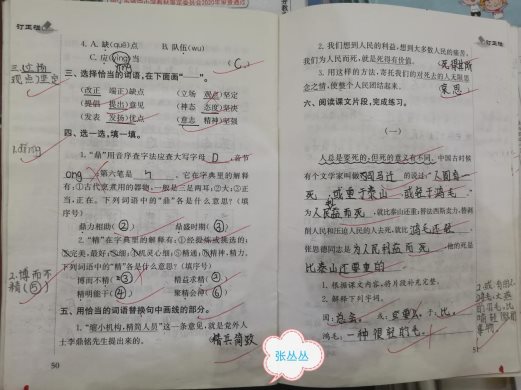 订正栏
4. A. 缺(quē)点 B. 队伍(wu)
C. 应(yīng)当
C.
三、选择恰当的词语,在下面画“____”。
(改正 端正)缺点 (立场 观点)坚定
(提倡 提出)意见 (神态 态度)坚决
(发表 发扬)优点 (意志 精神)坚强
四、选一选,填一填。
1. “鼎”用音序查字法应查大写字母 D ,音节
ong ,第六笔是 ,它在字典里的解释
有:①古代烹煮用的器物,一般是三足两耳;②大;③正
当,正在。下列词语中的“鼎”各是什么意思?(填
序号)
鼎力相助(②) 鼎盛时期(③)
2. “精”在字典里的解释有:①经提炼或挑选的;
②完美,最好;③细;④机灵心细;⑤精通;⑥精神,精力。
下列词语中的“精”各是什么意思?(填序号)
博而不精(③) 精益求精(②)
精明能干(④) 聚精会神(⑥)
五、用恰当的词语替换句中画线的部分。
1. “缩小机构,精简人员”这一条意见,就是党外人
士李鼎铭先生提出来的。
精兵简政
2.博而不
精(⑤)
50
订正栏
2. 我们想到人民的利益,想到大多数人民的痛苦,
我们为人民而死,就是死得有价值。
死得其所
3. 用这样的方法,寄托我们的对死去的人无限思
念之情,使整个人民团结起来。
哀思
六、阅读课文片段,完成练习。
(一)
人总是要死的,但死的意义有不同。中国古时候
有个文学家叫做司马迁的说过:“人固有一
死,或重于泰山,或轻于鸿毛。”
为人民利益而死,就比泰山还重;替法西斯卖力,替剥
削人民和压迫人民的人去死,就比鸿毛还轻。
张思德同志是为人民利益而死,他的死是
比泰山还要重的。
1. 根据课文内容,将片段补充完整。
2. 解释下列字词。
鸿毛:一种很轻的毛。
51
张丛丛